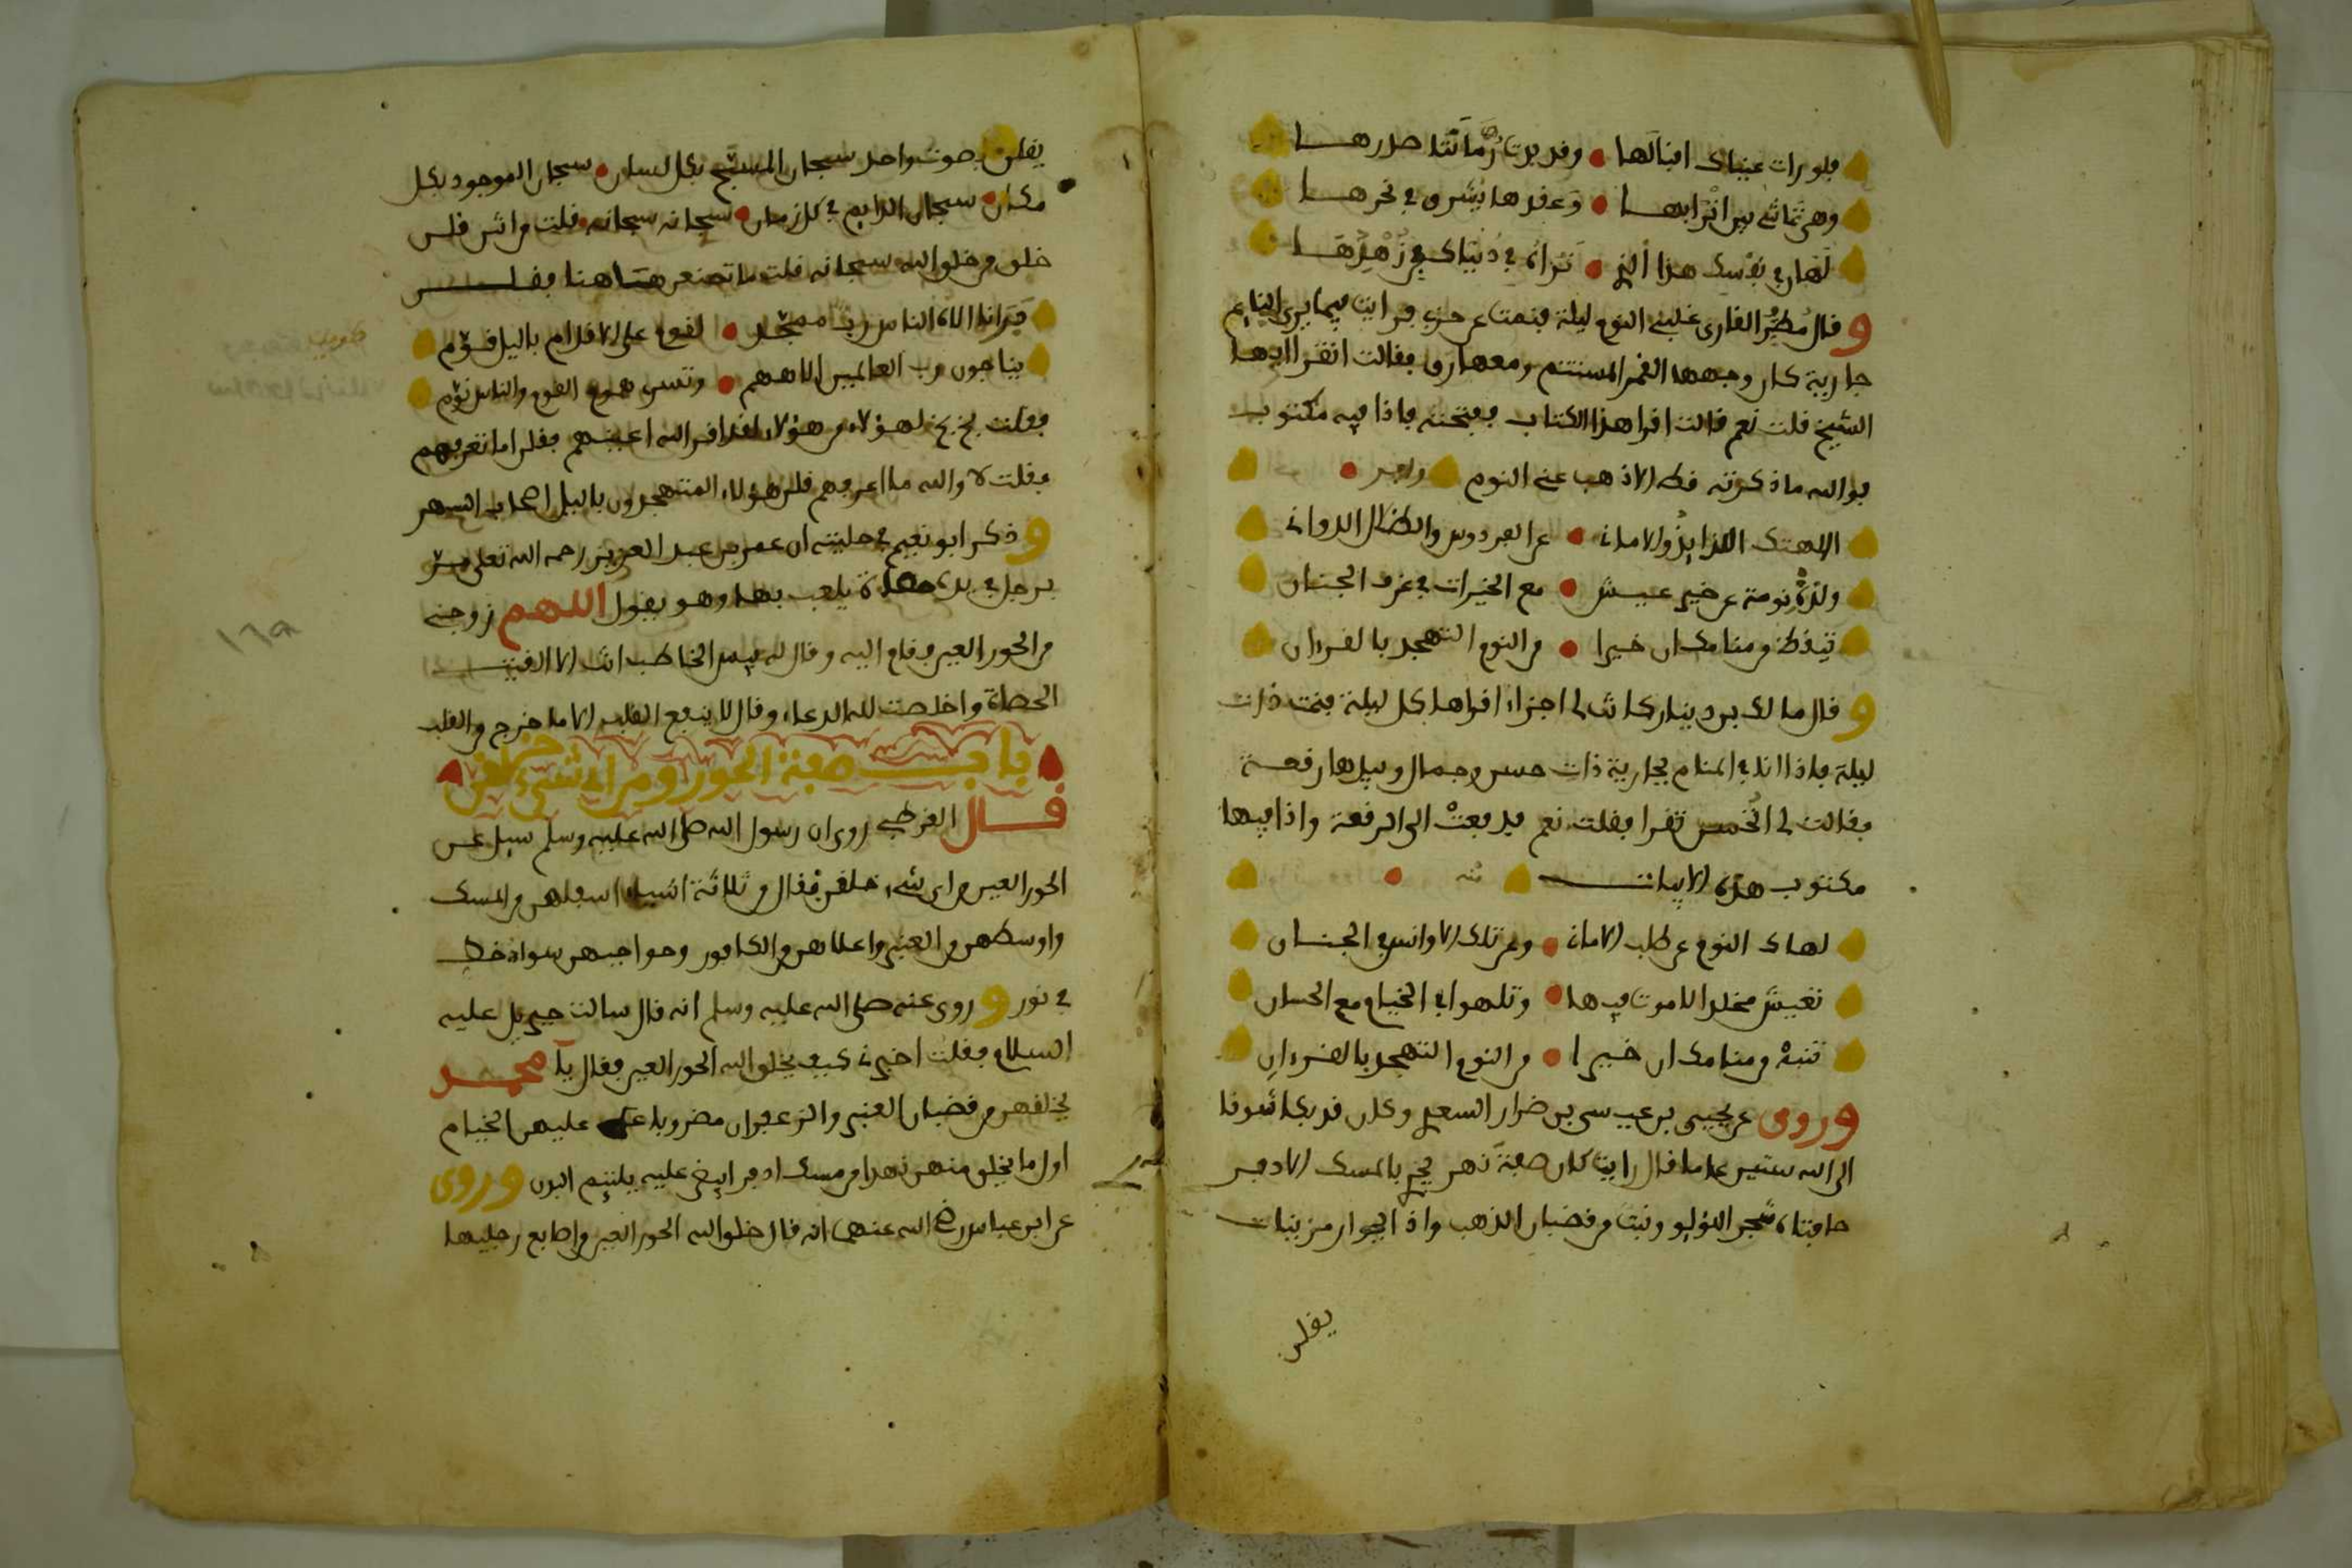 فلو رات عيناك اقبالها وقد بدت رمانتا صدرها
وهي تماشي بين اترابها وعقدها يشرق في نحرها
لهان في نفسك هذا الذي تراه في دنياك في زهرها
وقال مطر القارئ غلبني النوم ليلة فنمت عن حزبي فرايت فيما يرى النايم
جارية كان وجهها القمر المستتم ومعها رق فقالت اتقرا ايها
الشيخ قلت نعم قالت اقرا هذا الكتاب ففتحته فاذا فيه مكتوب
فوالله ما ذكرته قط الا ذهب عني النوم
الاهتك اللذايذ والاماني عن الفردوس والظلل الدواني
ولذة نومة عن خير عيش مع الخيرات في غرف الجنان
تيقظ من منامك ان خيرا من النوم التهجد بالقرءان
وقال مالك بن دينار كان لي اجزاء اقراها كل ليلة فنمت ذات
ليلة فاذا انا في المنام بجارية ذات حسن وجمال وبيدها رقعة
فقالت لي اتحسن تقرا فقلت نعم فدفعت الى الرقعة واذا فيها
مكتوب هذه الابيات
لهاك النوم عن طلب الاماني وعن تلك الاوانس في الجنان
تعيش مخلدا لا موت فيها وتلهوا في الخيام مع الحسان
تنبه من منامك ان خيرا من النوم التهجد بالقرءان
وروى عن يحيى بن عيسى بن ضرار السعدي وكان قد بكا شوقا
الى الله ستين عاما قال رايت كان ضفة نهر يجري بالمسك الاذفر
حافتاه شجر اللؤلؤ ونبت من قضبان الذهب واذا بجوار مزينات
يقلن
يقلن بصوت واحد سبحان المسبح بكل لسان سبحان الموجود بكل
مكان سبحان الدايم في كل زمان سبحانه سبحانه قلت من انتن قلن
خلق من خلق الله سبحانه قلت ما تصنعن هاهنا فقلن
ذرانا الاه الناس رب محمد لقوم على الاقدام باليل قوم
يناجون رب العالمين الاههم وتسري هموم القوم والناس نوم
فقلت بخ بخ لهؤلاء من هؤلاء لقد اقر الله اعينهم فقلن اما تعرفهم
فقلت لا والله ما اعرفهم قلن هؤلاء المتهجدون باليل اصحاب السهر
وذكر ابو نعيم في حليته ان عمر بن عبد العزيز رحمه الله تعلى مر
برجل في يده حصاة يلعب بها وهو يقول اللهم زوجني
من الحور العين فقام اليه وقال له بيس الخاطب انت الا القيت
الحصاة واخلصت لله الدعاء وقال لا ينفع القلب الا ما خرج من القلب
باب صفة الحور ومن اي شيء خلقن
قال القرطبي روي ان رسول الله صلى الله عليه وسلم سيل عن
الحور العين من اي شيء خلقن فقال من ثلاثة اشياء اسفلهن من المسك
واوسطهن من العنبر واعلاهن من الكافور وحواجبهن سواد خط
في نور وروي عنه صلى الله عليه وسلم انه قال سالت جبريل عليه
السلام فقلت اخبرني كيف يخلق الله الحور العين فقال يا محمد
يخلقهن من قضبان العنبر والزعفران مضروبات عليهن الخيام
اول ما يخلق منهن نهدا من مسك اذفر ابيض عليه يلتيم البدن وروى
عن ابن عباس رضي الله عنهما انه قال خلق الله الحور العين من اصابع رجليها
١٦٩